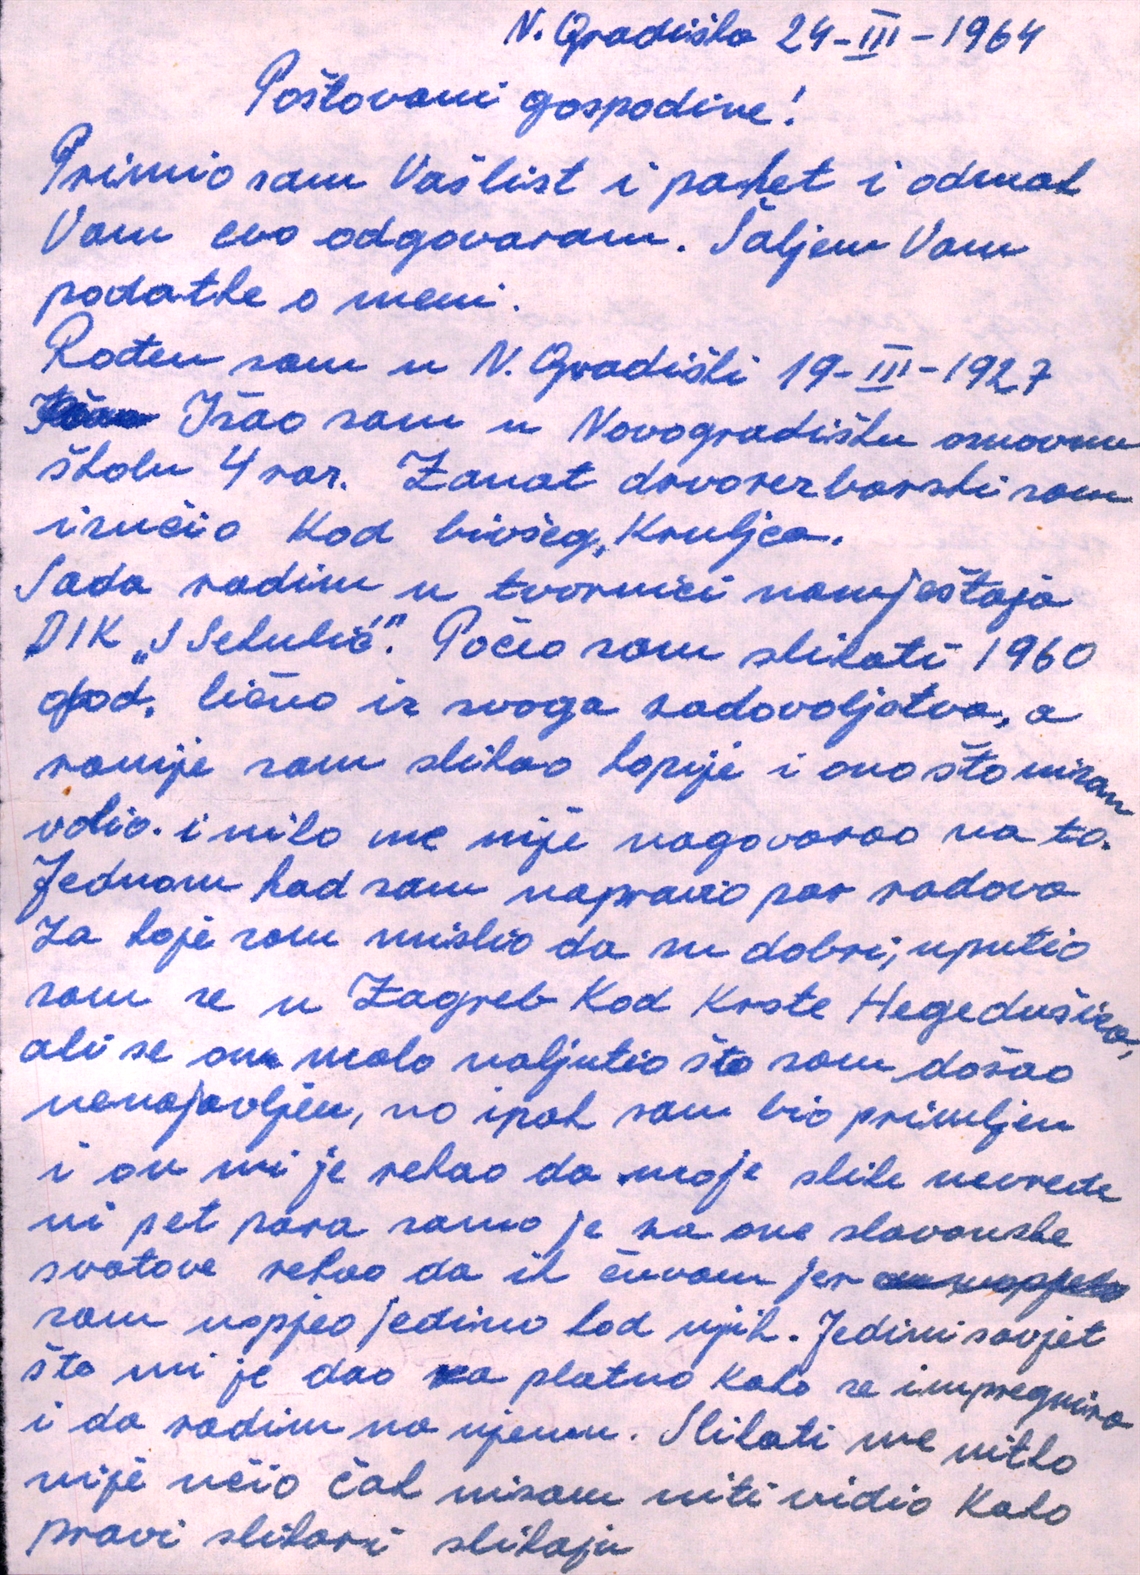 N. Gradiška 24-III-1964
Poštovani gospodine!
Primio sam Vaš list i paket i odmah
Vam evo odgovaram. Šaljem Vam
podatke o meni.
Rođen sam u N. Gradiški 19-III-1927
Išao sam u Novogradišku osnovnu
školu 4 raz. Zanat drvorezbarski sam
izučio kod bivšeg, Kruljca.
Sada radim u tvornici namještaja
DIK „S Sekulić". Počeo sam slikati 1960
god. lično iz svoga zadovoljstva, a
ranije sam slikao kopije i ono što nisam
volio. i nitko me nije nagovarao na to.
Jednom kad sam napravio par radova
za koje sam mislio da su dobri, uputio
sam se u Zagreb kod Krste Hegedušića,
ali se on malo naljutio što sam došao
nenajavljen, no ipak sam bio primljen
i on mi je rekao da moje slike nevrede
ni pet para samo je za one slavonske
svatove rekao da ih čuvam jer
sam uspjeo jedino kod njih. Jedini savjet
što mi je dao za platno kako se impregnira
i da radim na njemu. Slikati me nitko
nije učio čak nisam niti vidio kako
pravi slikari slikaju